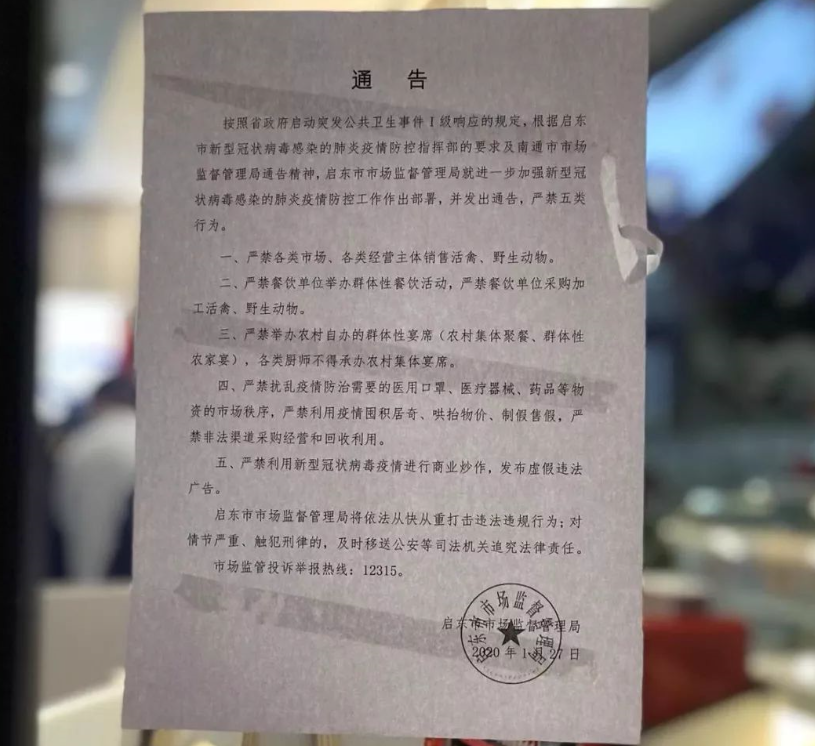 通 告
按照省政府启动突发公共卫生事件Ⅰ级响应的规定，根据启东
市新型冠状病毒感染的肺炎疫情防控指挥部的要求及南通市市场
监督管理局通告精神，启东市市场监督管理局就进一步加强新型冠
状病毒感染的肺炎疫情防控工作作出部署，并发出通告，严禁五类
行为。
一、严禁各类市场、各类经营主体销售活禽、野生动物。
二、严禁餐饮单位举办群体性餐饮活动，严禁餐饮单位采购加
工活禽、野生动物。
三、严禁举办农村自办的群体性宴席（农村集体聚餐、群体性
农家宴），各类厨师不得承办农村集体宴席。
四、严禁扰乱疫情防治需要的医用口罩、医疗器械、药品等物
资的市场秩序，严禁利用疫情囤积居奇、哄抬物价、制假售假，严
禁非法渠道采购经营和回收利用。
五、严禁利用新型冠状病毒疫情进行商业炒作，发布虚假违法
广告。
启东市市场监督管理局将依法从快从重打击违法违规行为；对
情节严重、触犯刑律的，及时移送公安等司法机关追究法律责任。
市场监管投诉举报热线：12315。
启东市市场监督管理局
2020 年 1 月 27 日
启东市市场监督管理局